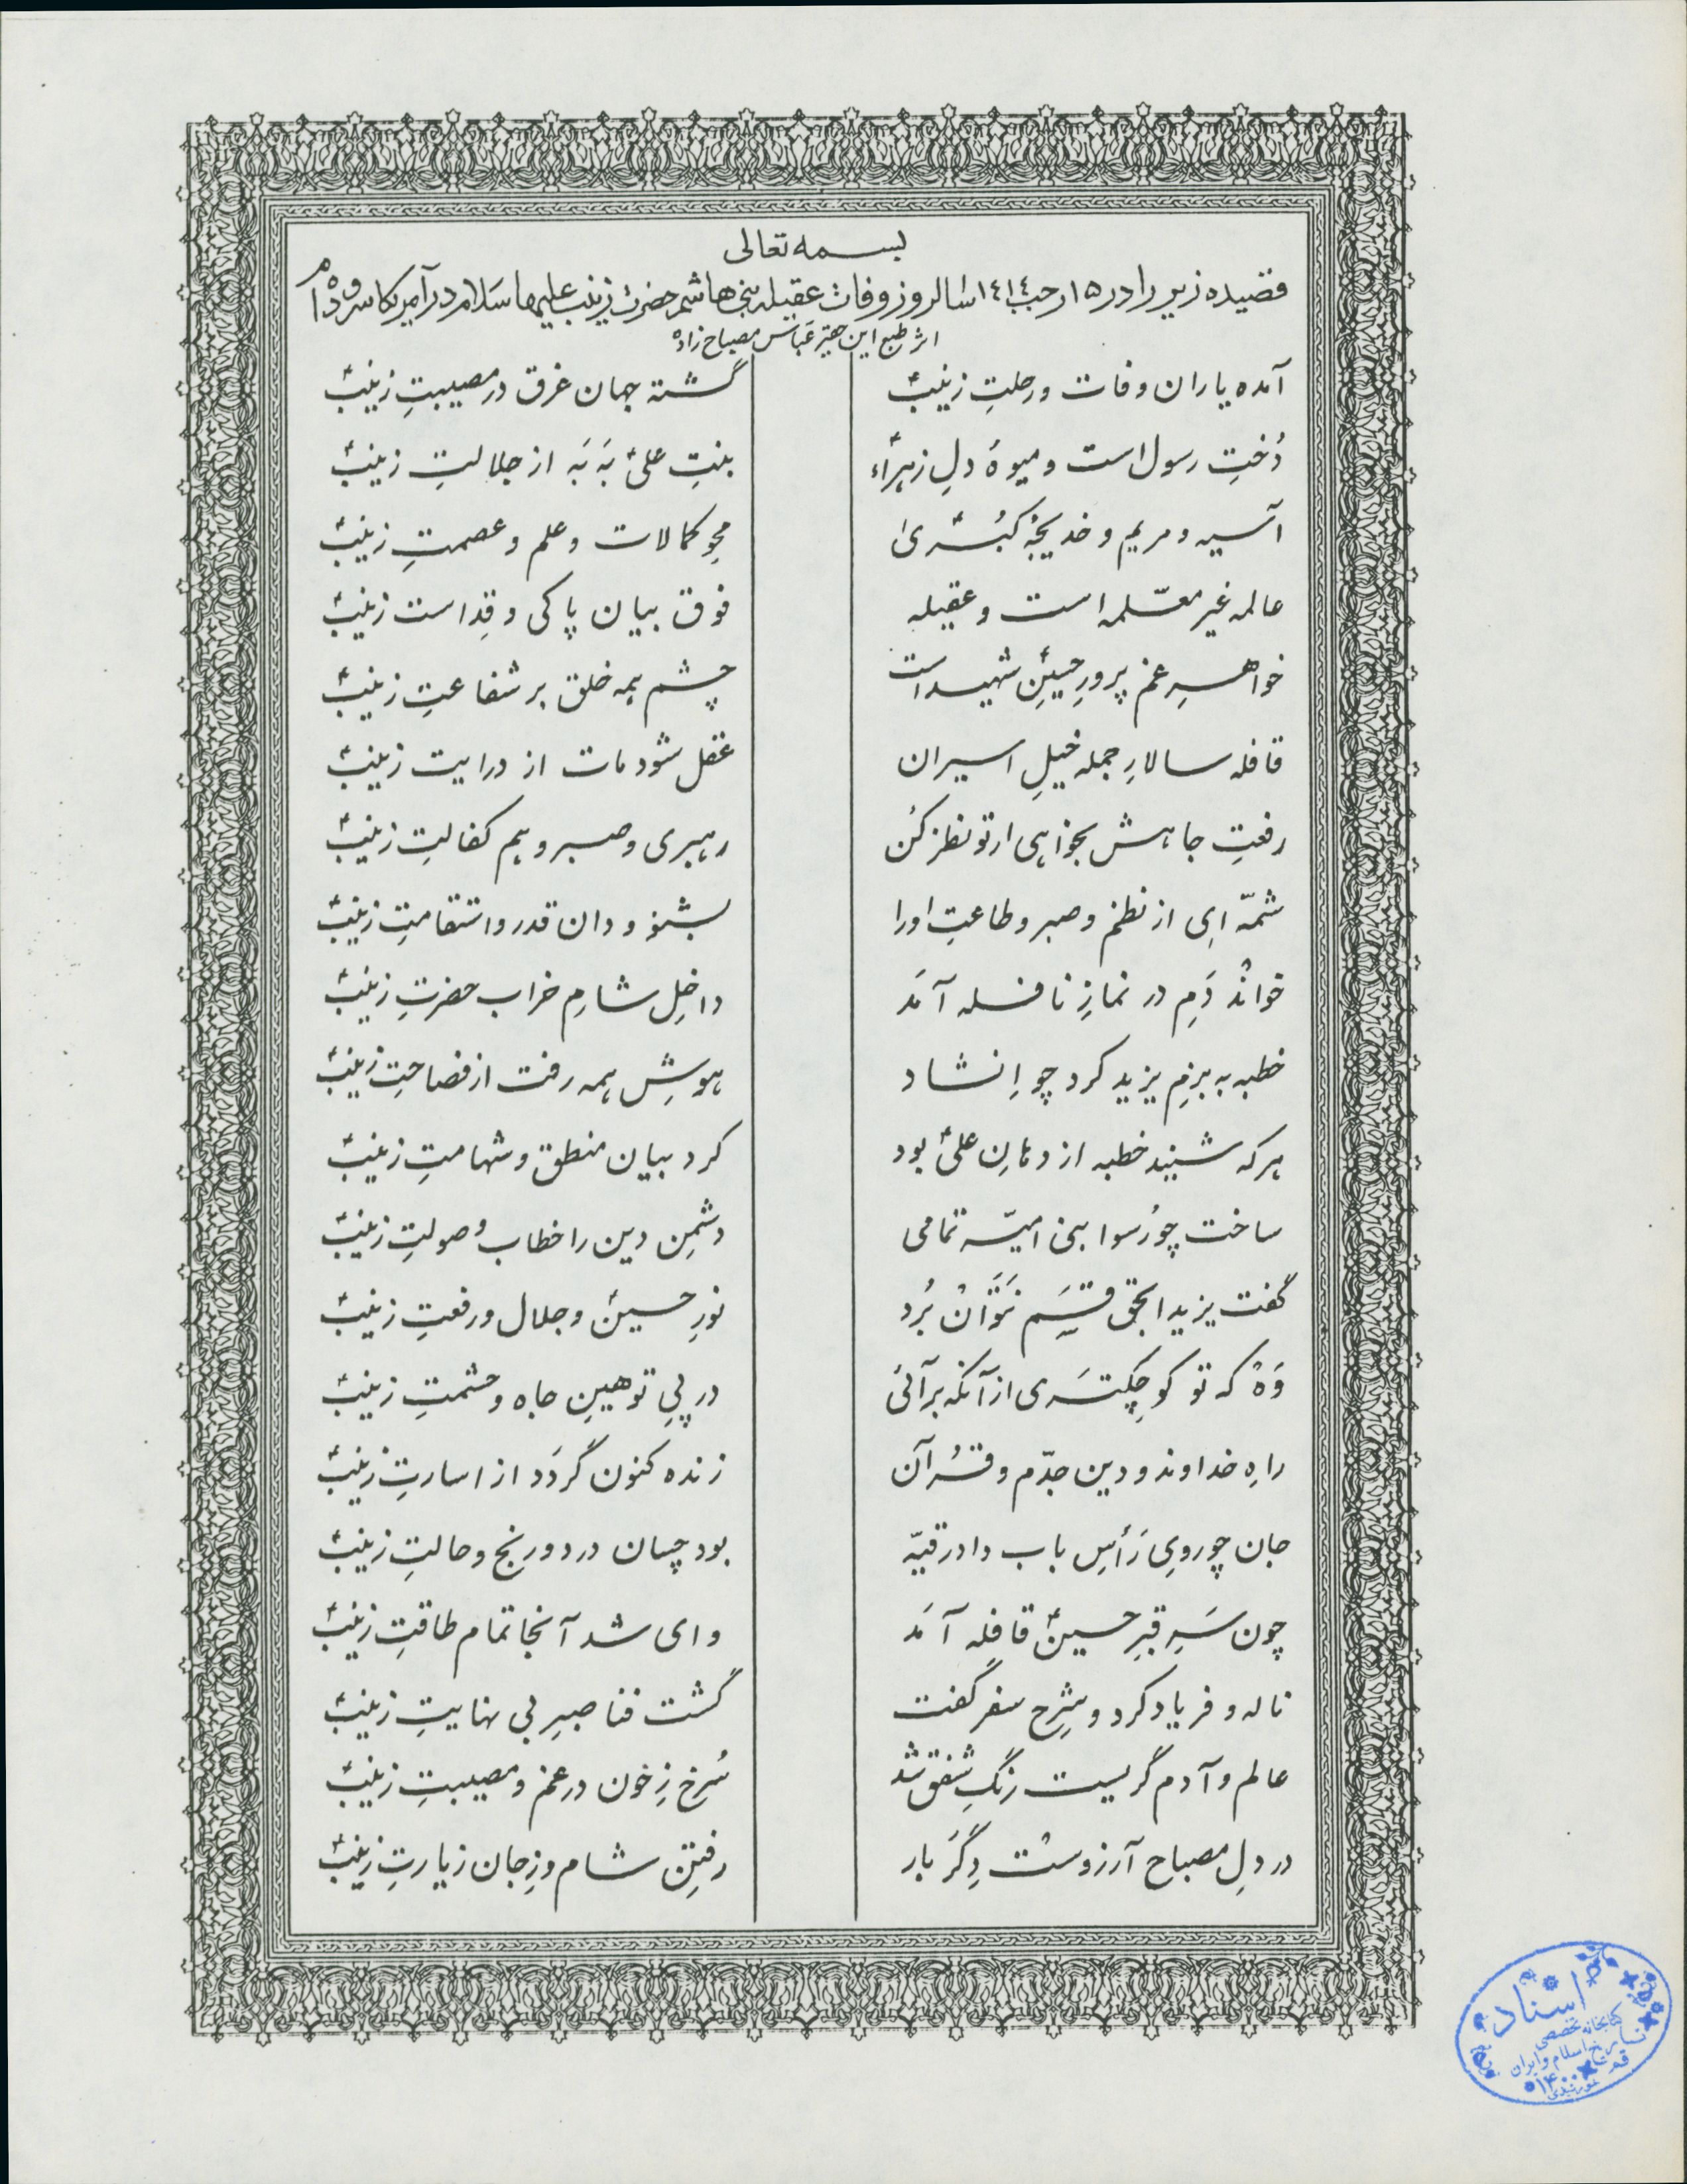 بسمه تعالی
قصیده زیر را در ۱۵ رجب ۱۴۱۴ سالروز وفات عقیله بنی هاشم حضرت زینب علیها سلام در آمریکا سروده ام
اثر طبع این حقیر عباس مصباح زاده
آمده یاران وفات و رحلتِ زینبؑ گشته جهان غرق در مصیبتِ زینبؑ
دُختِ رسول است و میوهٔ دلِ زهراءؑ بنتِ علیؑ بَه بَه از جلالتِ زینبؑ
آسیه و مریم و خدیجهٔ کُبریٰ محوِ کمالات و علم و عصمتِ زینبؑ
عالمه غیر معلّمه است و عقیله فوق بیان پاکی و قِداست زینبؑ
خواهرِ غم پرورِ حسینِؑ شهید است چشم همه خلق بر شفاعتِ زینبؑ
قافله سالارِ جمله خیلِ اسیران عقل شود مات از درایت زینبؑ
رفعتِ جاهش بخواهی ار تو نظر کُن رهبری و صبر و هم کفالتِ زینبؑ
شمّه ای از نظم و صبر و طاعتِ او را بشنو و دان قدر و استقامتِ زینبؑ
خوانْد دَمِ در نمازِ نافله آمَد داخلِ شامِ خراب حضرتِ زینبؑ
خطبه به بزمِ یزید کرد چو اِنشاد هوشِ همه رفت از فصاحتِ زینبؑ
هرکه شنید خطبه از دهانِ علیؑ بود کرد بیان منطق و شهامتِ زینبؑ
ساخت چو رُسوا بنی امیّه تمامی دشمنِ دین را خطاب و صولتِ زینبؑ
گفت یزیدا بحق قسَم نَتَوانْ بُرد نورِ حسینؑ و جلال و رفعتِ زینبؑ
وَهْ که تو کوچکتَری از آنکه برآئی در پیِ توهینِ جاه و حشمتِ زینبؑ
راهِ خداوند و دین جدّم و قُرآن زنده کنون گردَد از اسارتِ زینبؑ
جان چو رویِ رَأسِ باب داد رقیّه بود چسان درد و رنج و حالتِ زینبؑ
چون سَرِ قبرِ حسینؑ قافله آمَد وای شد آنجا تمام طاقتِ زینبؑ
ناله و فریاد کرد و شرحِ سفر گفت گشت فنا صبرِ بی نهایتِ زینبؑ
عالم و آدم گریست رنگِ شفق شد سُرخ زِ خون در غم و مصیبتِ زینبؑ
در دلِ مصباح آرزوست دِگَر بار رفتنِ شام و زِجان زیارتِ زینبؑ
اسناد
کتابخانه تخصصی
تاریخ اسلام و ایران
قم